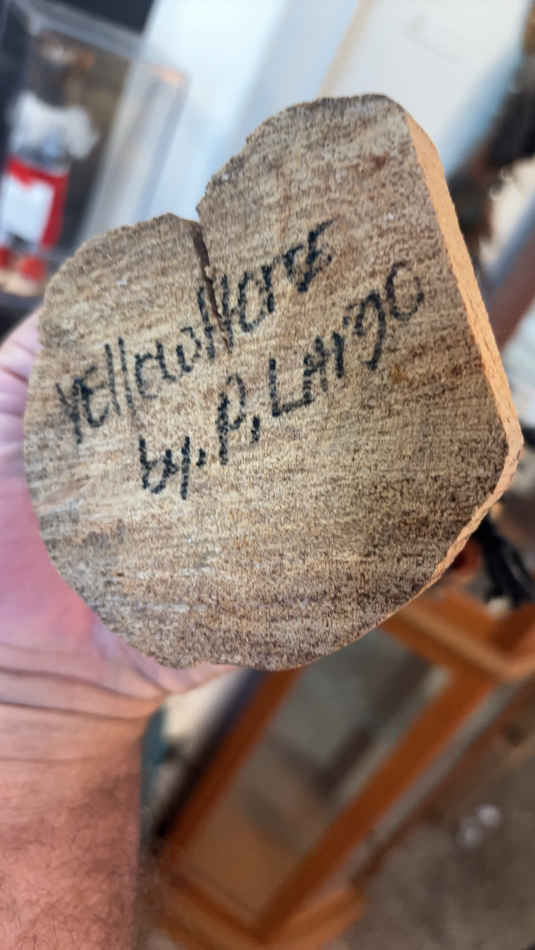 yellowHorse
by, P, LArgo